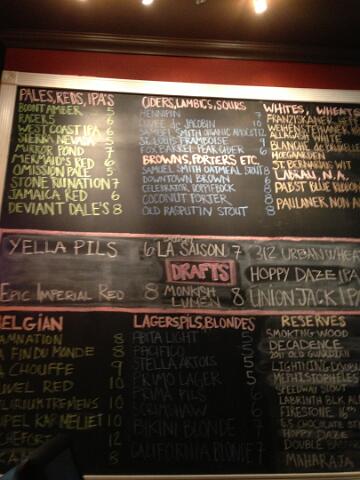 PALES, REDS, IPA'S
BOONT AMBER 5
RACER 5 6
WEST COAST IPA 6
SIERRA NEVADA 5
MIRROR POND 7
MERMAID'S RED 6
OMISSION PALE 5
STONE RUINATION 7
JAMAICA RED 6
DEVIANT DALE'S 8
CIDERS, LAMBICS, SOURS
HENNIPIN 7
CUVEE de JACOBIN 10
SAMUEL SMITH ORGANIC APPLE 12
ST. LOUIS FRAMBOISE 9
FOX BARREL PEAR CIDER 6
BROWNS, PORTERS ETC.
SAMUEL SMITH OATMEAL STOUT 8
DOWNTOWN BROWN 6
CELEBRATOR DOPPELBOCK 8
COCONUT PORTER 8
OLD RASPUTIN STOUT 8
WHITES, WHEATS
FRANZISKANER
WEIHENSTEPHANER
ALLAGASH WHITE
BLANCHE de BRUXELLES
HOEGAARDEN
ST. BERNARDUS WIT
LABEAU, N.A.
PABST BLUE RIBBON
PAULANER NON A
YELLA PILS 6
LA SAISON 7
312 URBAN WHEA
DRAFTS
HOPPY DAZE IPA
EPIC IMPERIAL RED 8
MONKISH LUMEN 8
UNION JACK IPA
ELGIAN
AMNATION 8
A FIN DU MONDE 8
A CHOUFFE 9
UVEL RED 10
LIRIUM TREMENS 10
UPEL KARMELIET 10
CHEFORT 12
8
LAGERS, PILS, BLONDES
ABITA LIGHT 5
PACIFICO 5
STELLA ARTOIS 5
PRIMO LAGER 5
PRIMA PILS 6
SCRIMSHAW 6
BIKINI BLONDE 7
CALIFORNIA BLONDE 7
RESERVES
SMOKING WOOD
DECADENCE
2011 OLD GUARDIAN
MEPHISTOPHELES
SPEEDWAY STOUT
LABRINTH BLK AL
FIRESTONE 16
6.5 CHOCOLATE ST
HOPPY DAZE
DOUBLE BAS
MAHARAJA